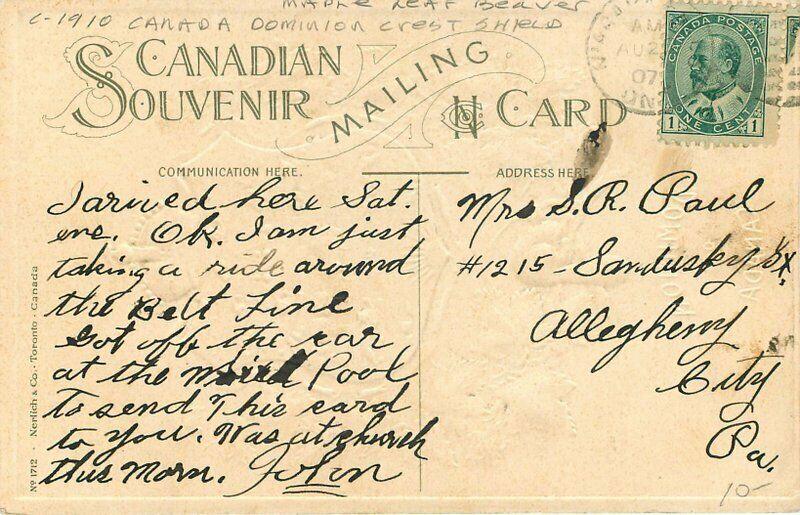 MAPLE LEAF BEAVER
C-1910 CANADA DOMINION CREST SHIELD
CANADIAN
SOUVENIR
MAILING
CARD
AM
AU
07
CANADA POSTAGE
1 ONE CENT 1
COMMUNICATION HERE.
ADDRESS HERE
I arived here Sat.
eve. Ok. I am just
taking a ride around
the Belt Line
Got off the car
at the Pool
To send This card
to you. Was at church
this Morn. John
Mrs S. R. Paul
#1215 - Sandusky St.
Allegheny
City
Pa.
No 1712 · Nerlich & Co. · Toronto · Canada
10-